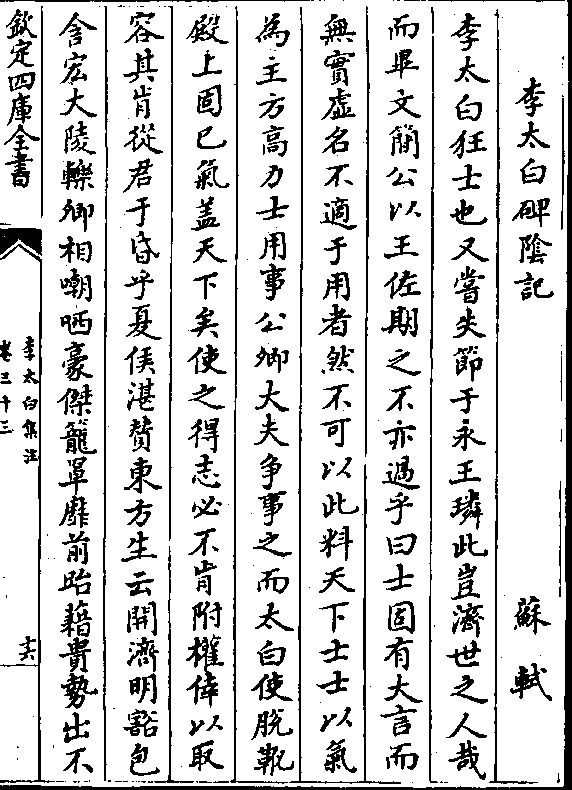 李太白碑陰記 蘇軾
李太白狂士也又嘗失節于永王璘此豈濟世之人哉
而畢文簡公以王佐期之不亦過乎曰士固有大言而
無實虛名不適于用者然不可以此料天下士士以氣
為主方高力士用事公卿大夫争事之而太白使脱靴
殿上固已氣盖天下矣使之得志必不肯附權倖以取
容其肯從君于昏乎夏侯湛贊東方生云開濟明豁包
含宏大陵轢卿相嘲哂豪傑籠罩靡前跆藉貴勢出不
欽定四庫全書
李太白集注
卷三十三
十六